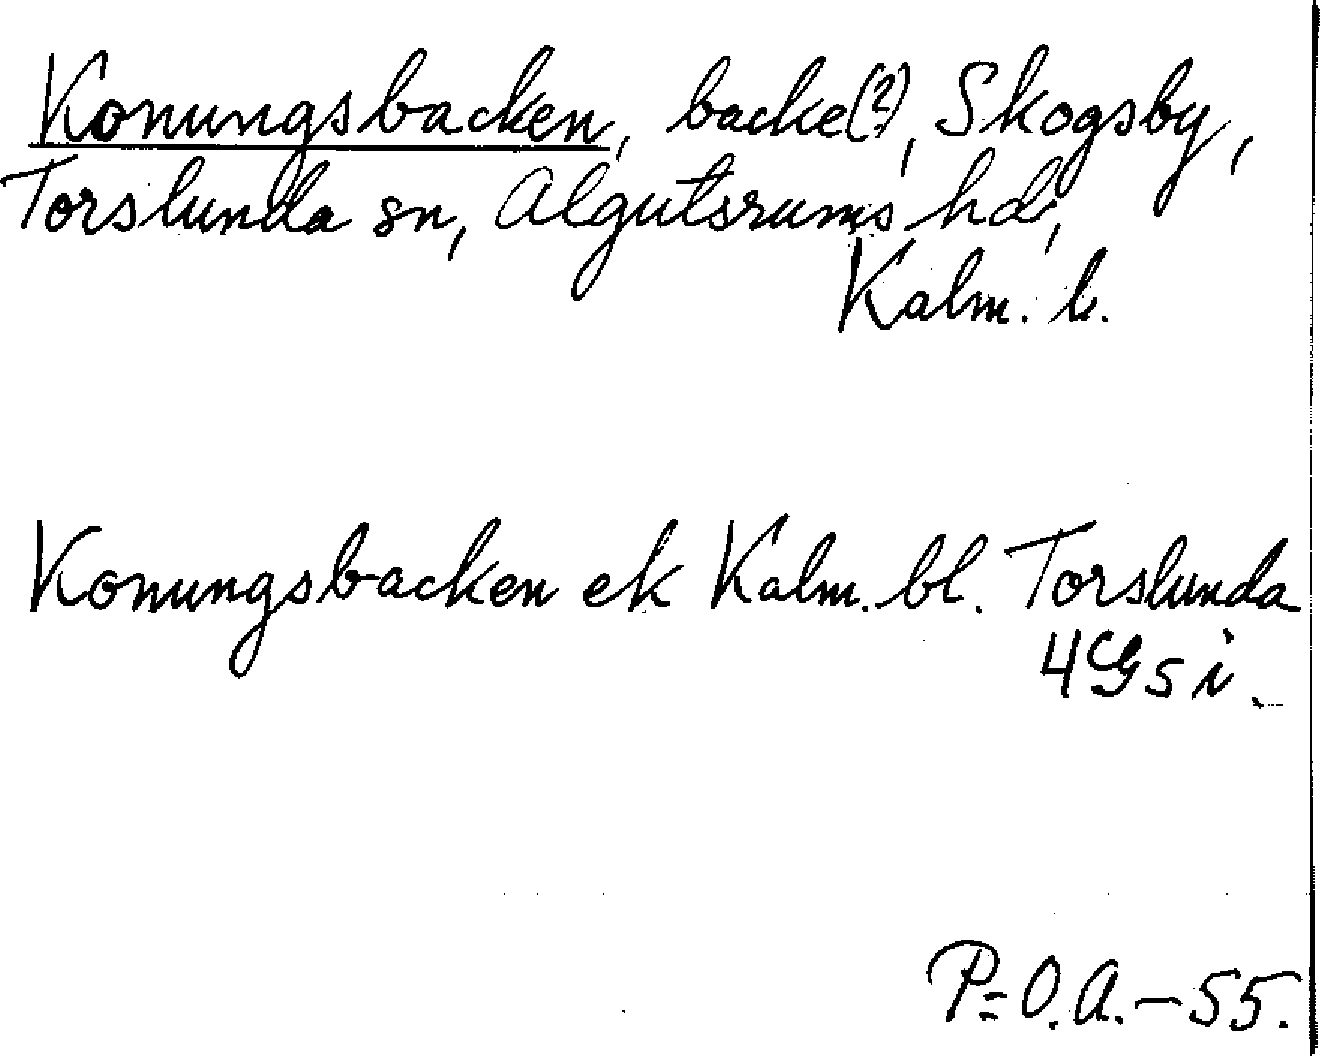 Konungsbacken, backe(?), Skogsby,
Torslunda sn, Algutsrums hd,
Kalm. l.
Konungsbacken ek Kalm. bl. Torslunda
4G5i.
P=O.A.-55.